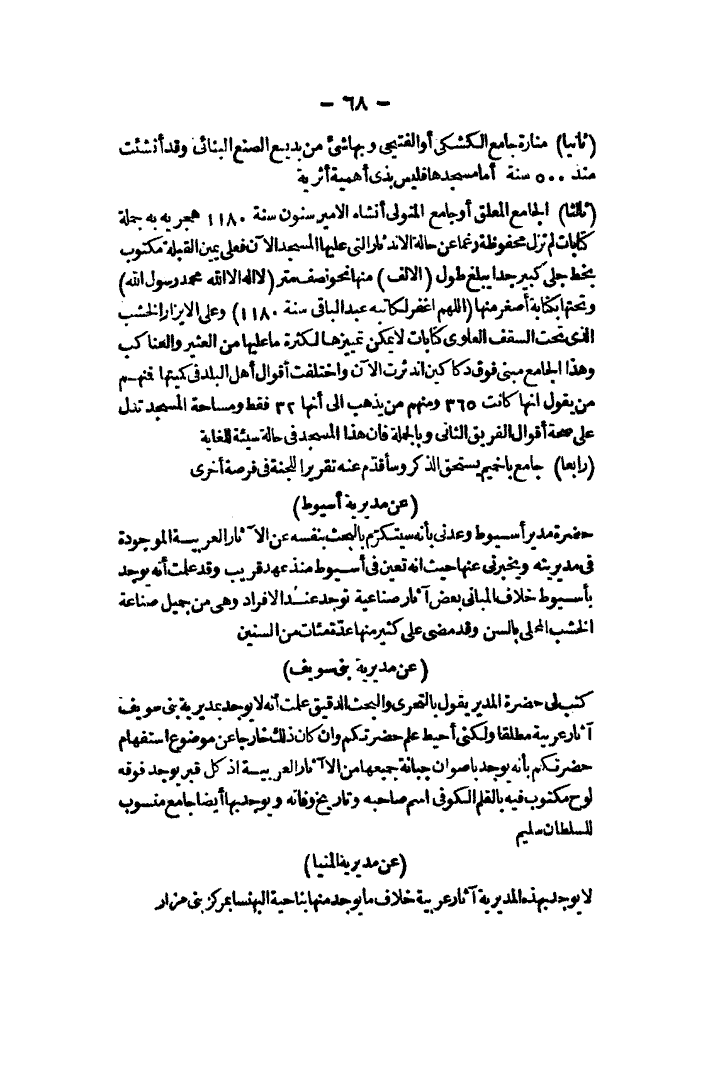 - ٦٨ -
(ثانيا) منارة جامع الكشكى أو الفتيحى وبهاشئ من بديع الصنع البنائى وقد أنشئت
منذ ٥٠٠ سنة أما مسجدها فليس بذى أهمية أثرية
(ثالثا) الجامع المعلق أو جامع المتولى أنشاه الامير سنون سنة ١١٨٠ هجريه به جملة
كتابات لم تزل محفوظة رغما عن حالة الاندثار التى عليها المسجد الآن فعلى يمين القبلة مكتوب
بخط جلى كبير جدا يبلغ طول (الالف) منها نحو نصف متر (لااله الا الله محمد رسول الله)
وتحتها بكتابة أصغر منها (اللهم اغفر لكاتبه عبد الباقى سنة ١١٨٠) وعلى الايزار الخشب
الذى تحت السقف العلوى كتابات لا يمكن تمييزها لكثرة ما عليها من العثير والعناكب
وهذا الجامع مبنى فوق دكاكين اندثرت الآن واختلفت أقوال أهل البلد فى كميتها فمنهم
من يقول انها كانت ٣٦٥ ومنهم من يذهب الى أنها ٣٢ فقط ومساحة المسجد تدل
على صحة أقوال الفريق الثانى وبالجملة فان هذا المسجد فى حالة سيئة للغاية
(رابعا) جامع باخميم يستحق الذكر وسأقدّم عنه تقريرا للجنة فى فرصة أخرى
(عن مديرية أسيوط)
حضرة مدير أسيوط وعدنى بأنه سيتكرّم بالبحث بنفسه عن الآثار العربية الموجودة
فى مديريته ويخبرنى عنها حيث انه تعين فى أسيوط منذ عهد قريب وقد علمت أنه يوجد
بأسيوط خلاف المبانى بعض آثار صناعية توجد عند الافراد وهى من جميل صناعة
الخشب المحلى بالسن وقد مضى على كثير منها عدّة مئات من السنين
(عن مديرية بنى سويف)
كتب لى حضرة المدير يقول بالتحرى والبحث الدقيق علمت أنه لا يوجد بمديرية بنى سويف
آثار عربية مطلقا ولكنى أحيط علم حضرتكم وان كان ذلك خارجا عن موضوع استفهام
حضرتكم بأنه يوجد باصوان جبانة جميعها من الآثار العربية اذ كل قبر يوجد فوقه
لوح مكتوب فيه بالقلم الكوفى اسم صاحبه وتاريخ وفاته ويوجد بها أيضا جامع منسوب
للسلطان سليم
(عن مديرية المنيا)
لا يوجد بهذه المديرية آثار عربية خلاف ما يوجد منها بناحية البهنسا بمركز بنى مزار